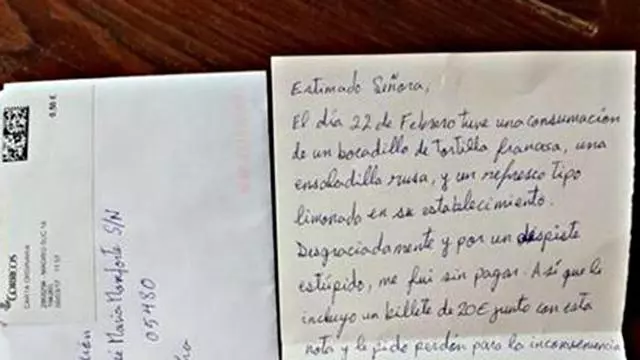 Estimado Señora,
El día 22 de Febrero tuve una consumación
de un bocadillo de tortilla francesa, una
ensaladilla rusa, y un refresco tipo
limonada en su establecimiento.
Desgraciadamente y por un despiste
estúpido, me fui sin pagar. Así que le
incluyo un billete de 20€ junto con esta
nota y le pido perdón para la inconveniencia
Correos
CARTA ORDINARIA
José María Monforte S/N
05480